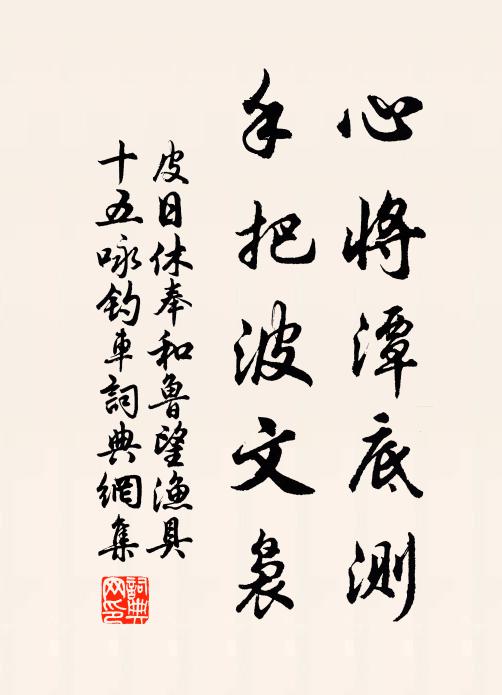 心將潭底測
手把波文裊
皮日休奉和魯望漁具
十五咏釣車詞典網集
詞典網印